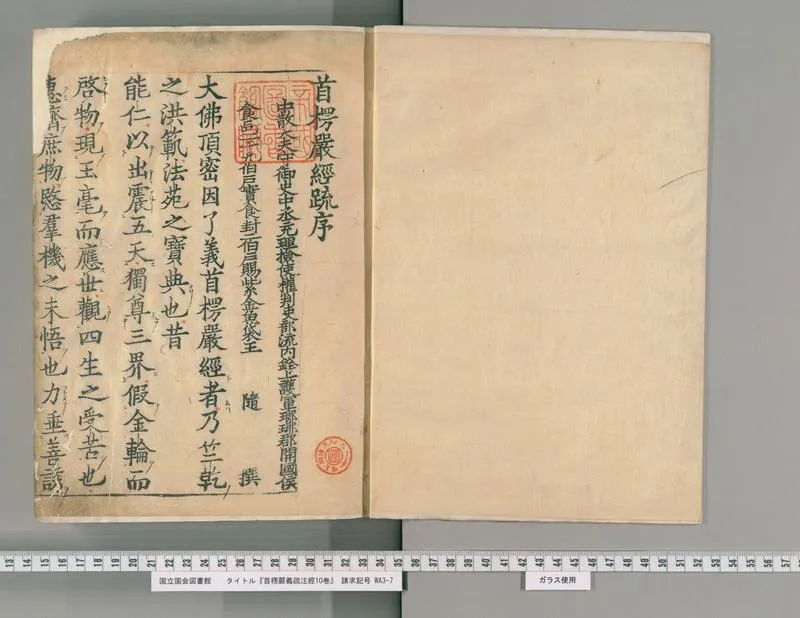 首楞嚴經疏序
中散大夫守御史中丞充理檢使權判吏部流内銓上護軍瑯琊郡開國侯
食邑一千九伯戶實食封二伯戶賜紫金魚袋王 隨 撰
大佛頂密因了義首楞嚴經者乃竺乾
之洪範法苑之寶典也昔
能仁以出震五天獨尊三界假金輪而
啓物現玉毫而應世觀四生之受苦也
惠濟庶物愍羣機之未悟也力垂善誘
13 14 15 16 17 18 19 20 21 22 23 24 25 26 27 28 29 30 31 32 33 34 35 36 37 38 39 40 41 42 43 44 45 46 47 48 49 50 51 52 53 54 55 56 57
国立国会図書館 タイトル『首楞嚴義疏注經10巻』 請求記号 WA3-7
ガラス使用